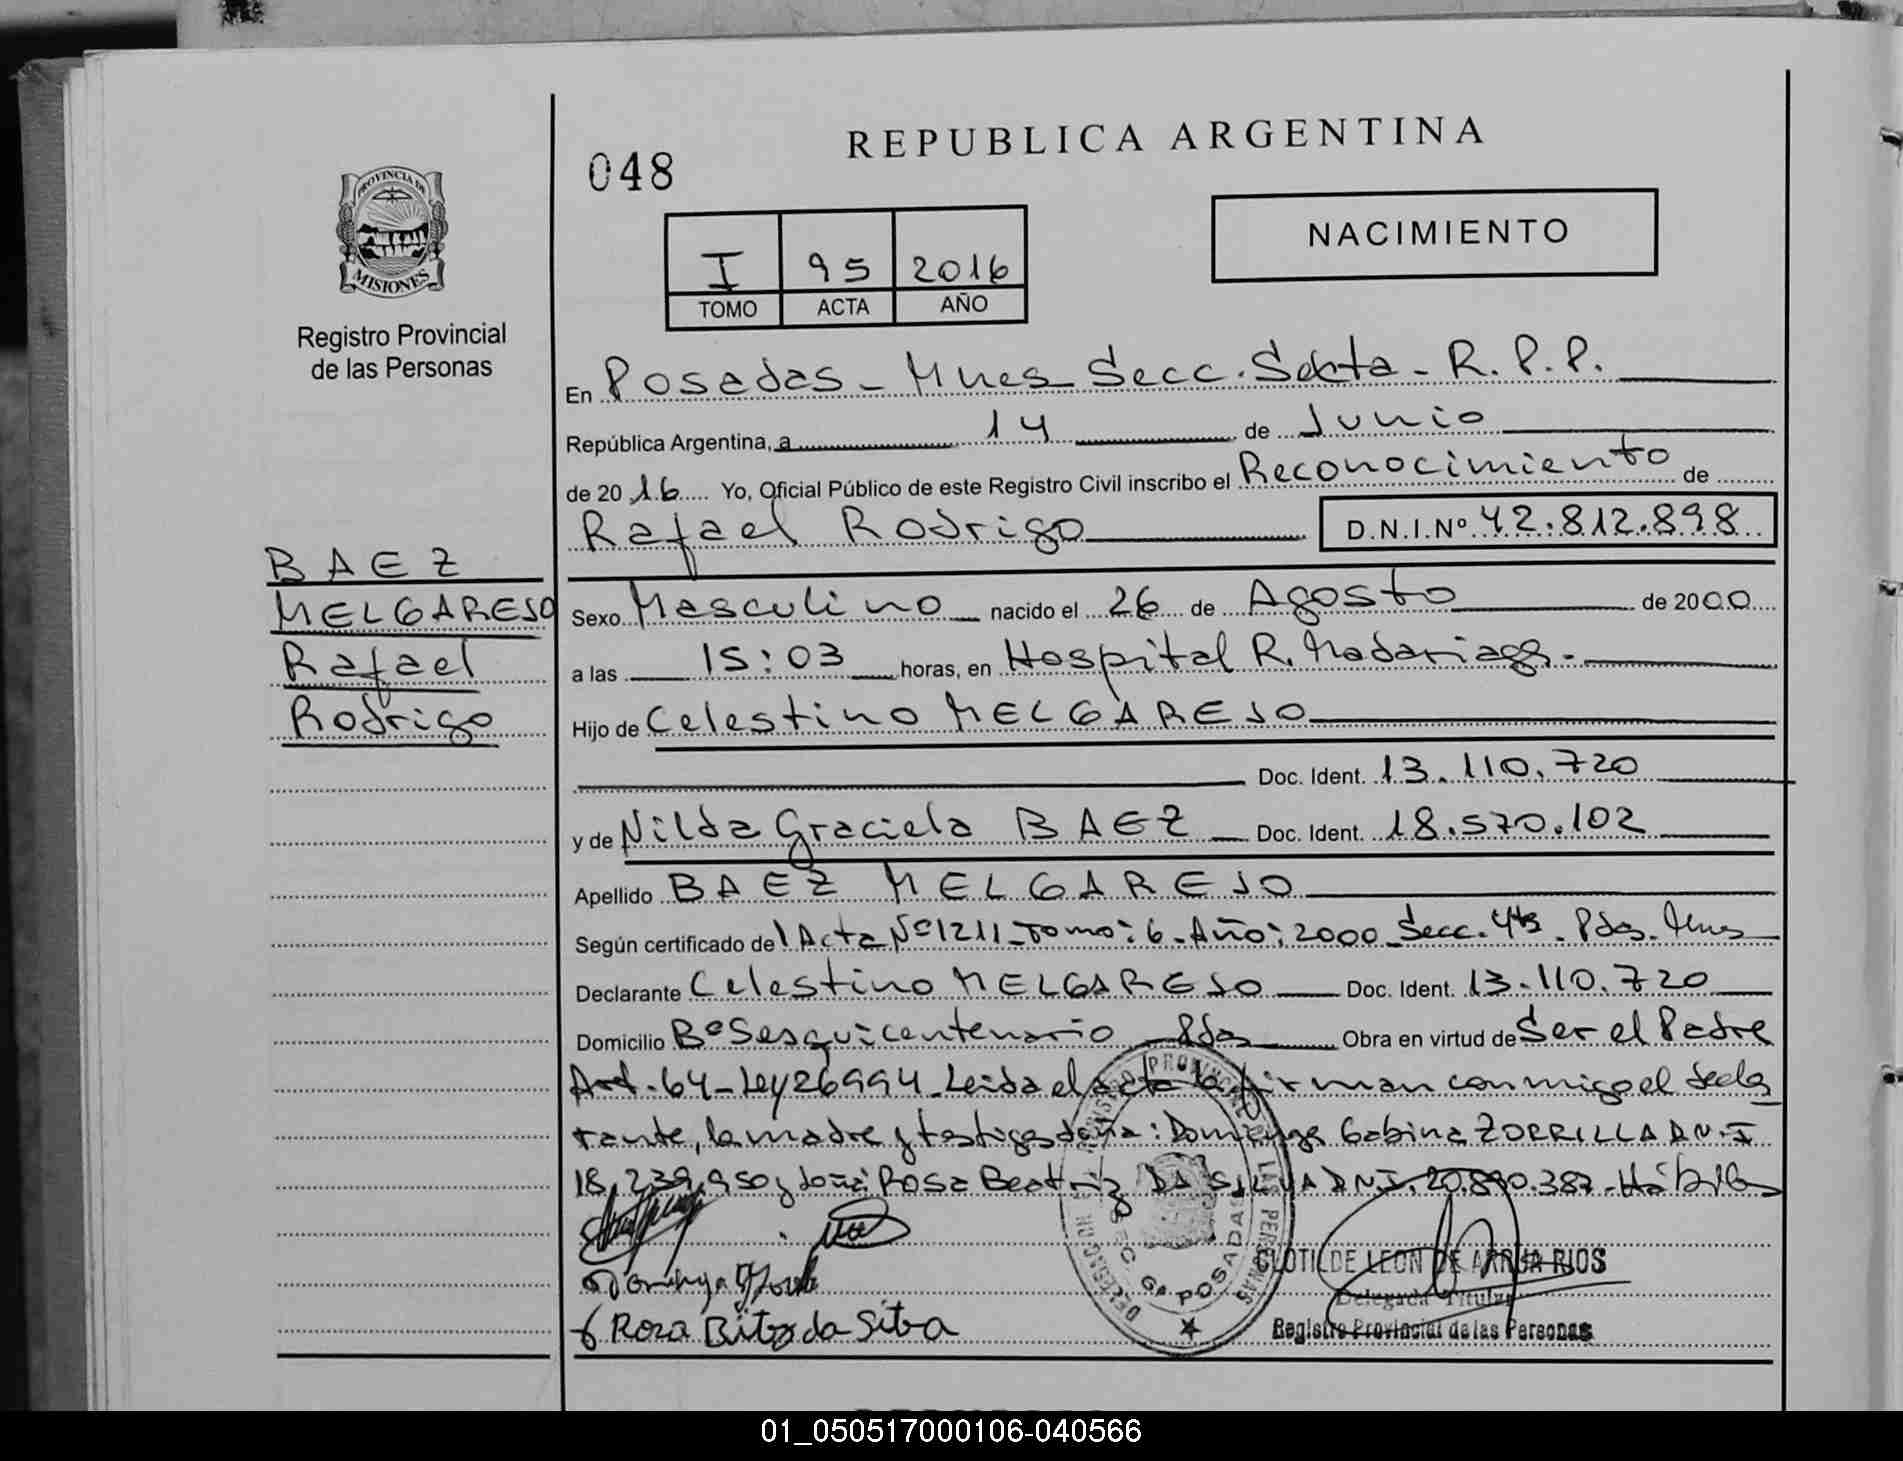 REPUBLICA ARGENTINA
048
NACIMIENTO
PROVINCIA DE
MISIONES
Registro Provincial
de las Personas
I 95 2016
TOMO ACTA AÑO
En Posadas - Mnes Secc. Sexta - R. P. P.
República Argentina, a 14 de Junio
de 2016 Yo, Oficial Público de este Registro Civil inscribo el Reconocimiento de
Rafael Rodrigo D.N.I.Nº 42.812.898
BAEZ
MELGAREJO
Rafael
Rodrigo
Sexo Masculino nacido el 26 de Agosto de 2000
a las 15:03 horas, en Hospital R. Madariaga.-
Hijo de Celestino MELGAREJO
Doc. Ident. 13.110.720
y de Nilda Graciela BAEZ Doc. Ident. 18.570.102
Apellido BAEZ MELGAREJO
Según certificado del Acta Nº 1211 - Tomo: 6 - Año: 2000 - Secc. 4ta. Pdas. Mnes
Declarante Celestino MELGAREJO Doc. Ident. 13.110.720
Domicilio Bº Sesquicentenario - Pdas Obra en virtud de Ser el Padre
Art. 64 - Ley 26994 - Leida el acta la firman conmigo el decla
rante, la madre y testigos doña: Dominga Gabina ZORRILLA D.N.I
18.239.950 y doña: Rosa Beatriz DA SILVA DNI. 20.890.387 - Hábiles
REGISTRO PROVINCIAL DE LAS PERSONAS
SECC. 6ª POSADAS
CLOTILDE LEON DE ARRUA RIOS
Delegada Titular
Registro Provincial de las Personas
Dominga
Rosa da Silva
01_050517000106-040566